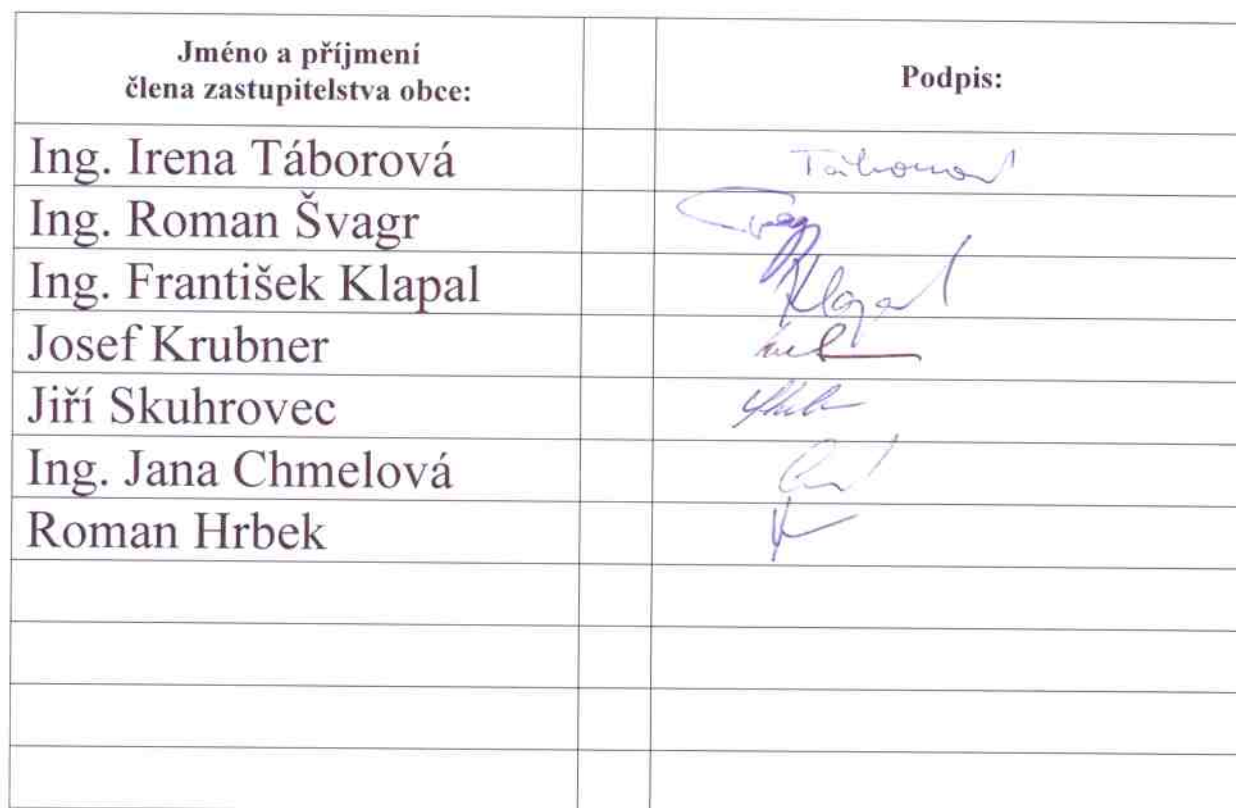 Jméno a příjmení
člena zastupitelstva obce:
Podpis:
Ing. Irena Táborová
Ing. Roman Švagr
Ing. František Klapal
Klapal
Josef Krubner
Jiří Skuhrovec
Ing. Jana Chmelová
Roman Hrbek